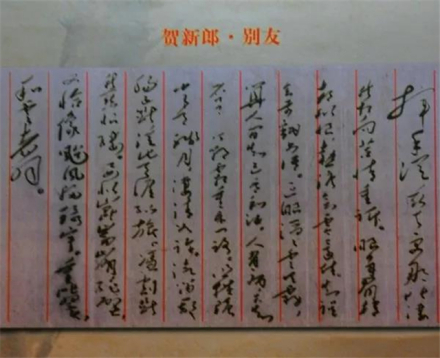 贺新郎·别友
挥手从兹去。更那堪凄
然相向,苦情重诉。眼角眉梢
都似恨,热泪欲零还住。知误
会前翻书语。过眼滔滔云共雾,
算人间知己吾和汝。人有病,天知
否?今朝霜重东门路,照横塘
半天残月,凄清如许。汽笛一声
肠已断,从此天涯孤旅。凭割断
愁丝恨缕。要似昆仑崩绝壁,
又恰像颱风扫寰宇。重比翼,
和云翥。